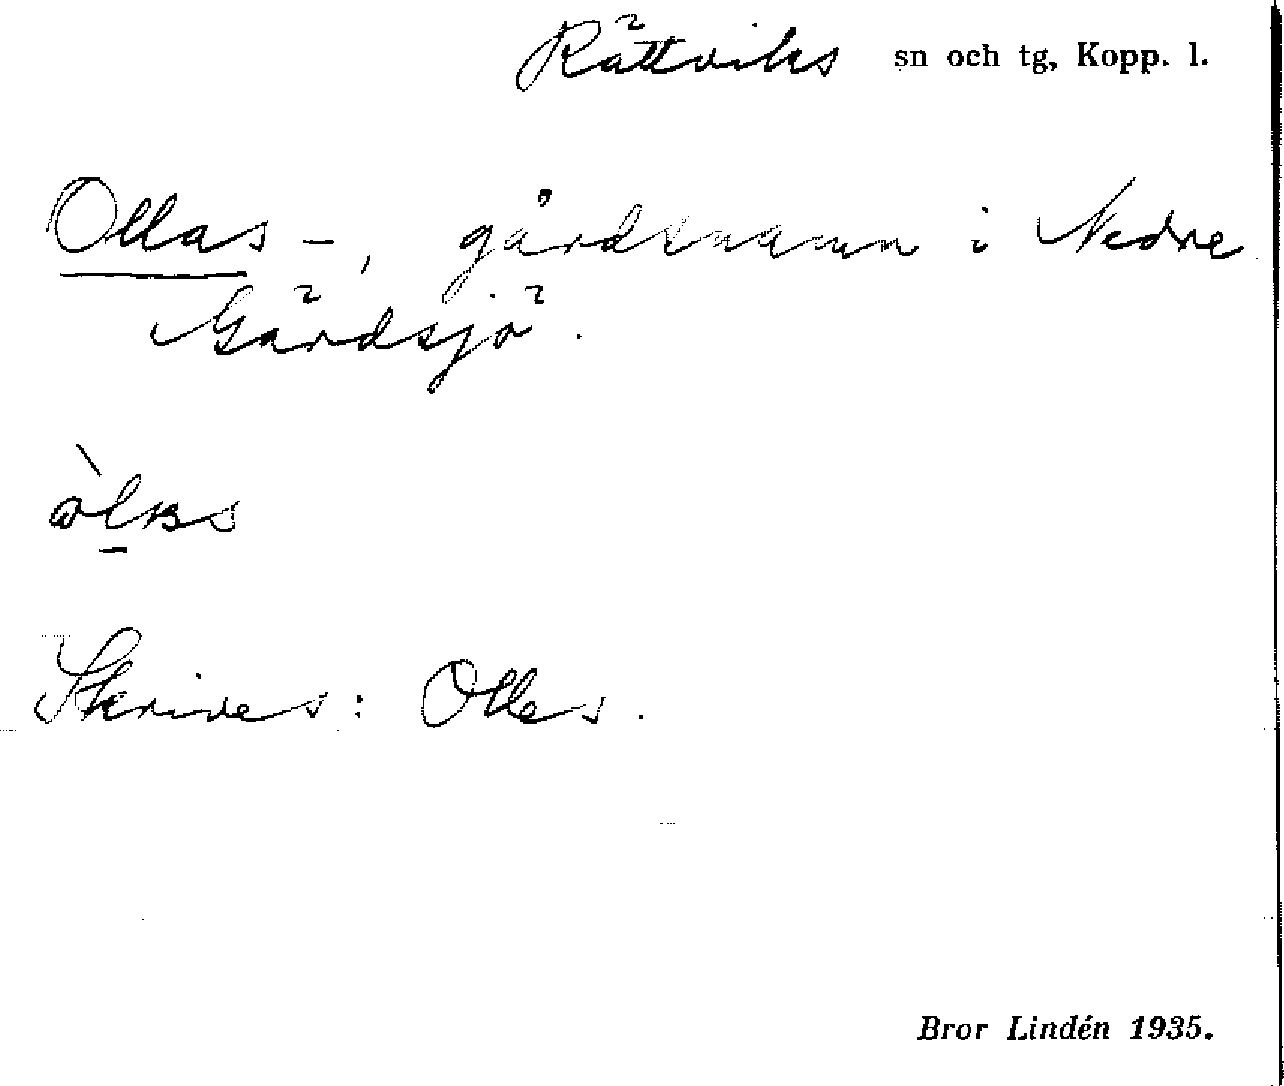 Rättviks sn och tg, Kopp. l.
Ollas –, gårdsnamn i Nedre
Gärdsjö.
Skrives: Olles.
Bror Lindén 1935.